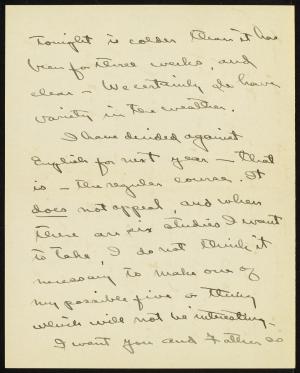 tonight is colder than it has
been for three weeks, and
clear - We certainly do have
variety in the weather.
I have decided against
English for next year - that
is - the regular course. It
does not appeal, and when
there are six studies I want
to take, I do not think it
necessary to make one of
my possible five a thing
which will not be interesting.
I want you and Father to